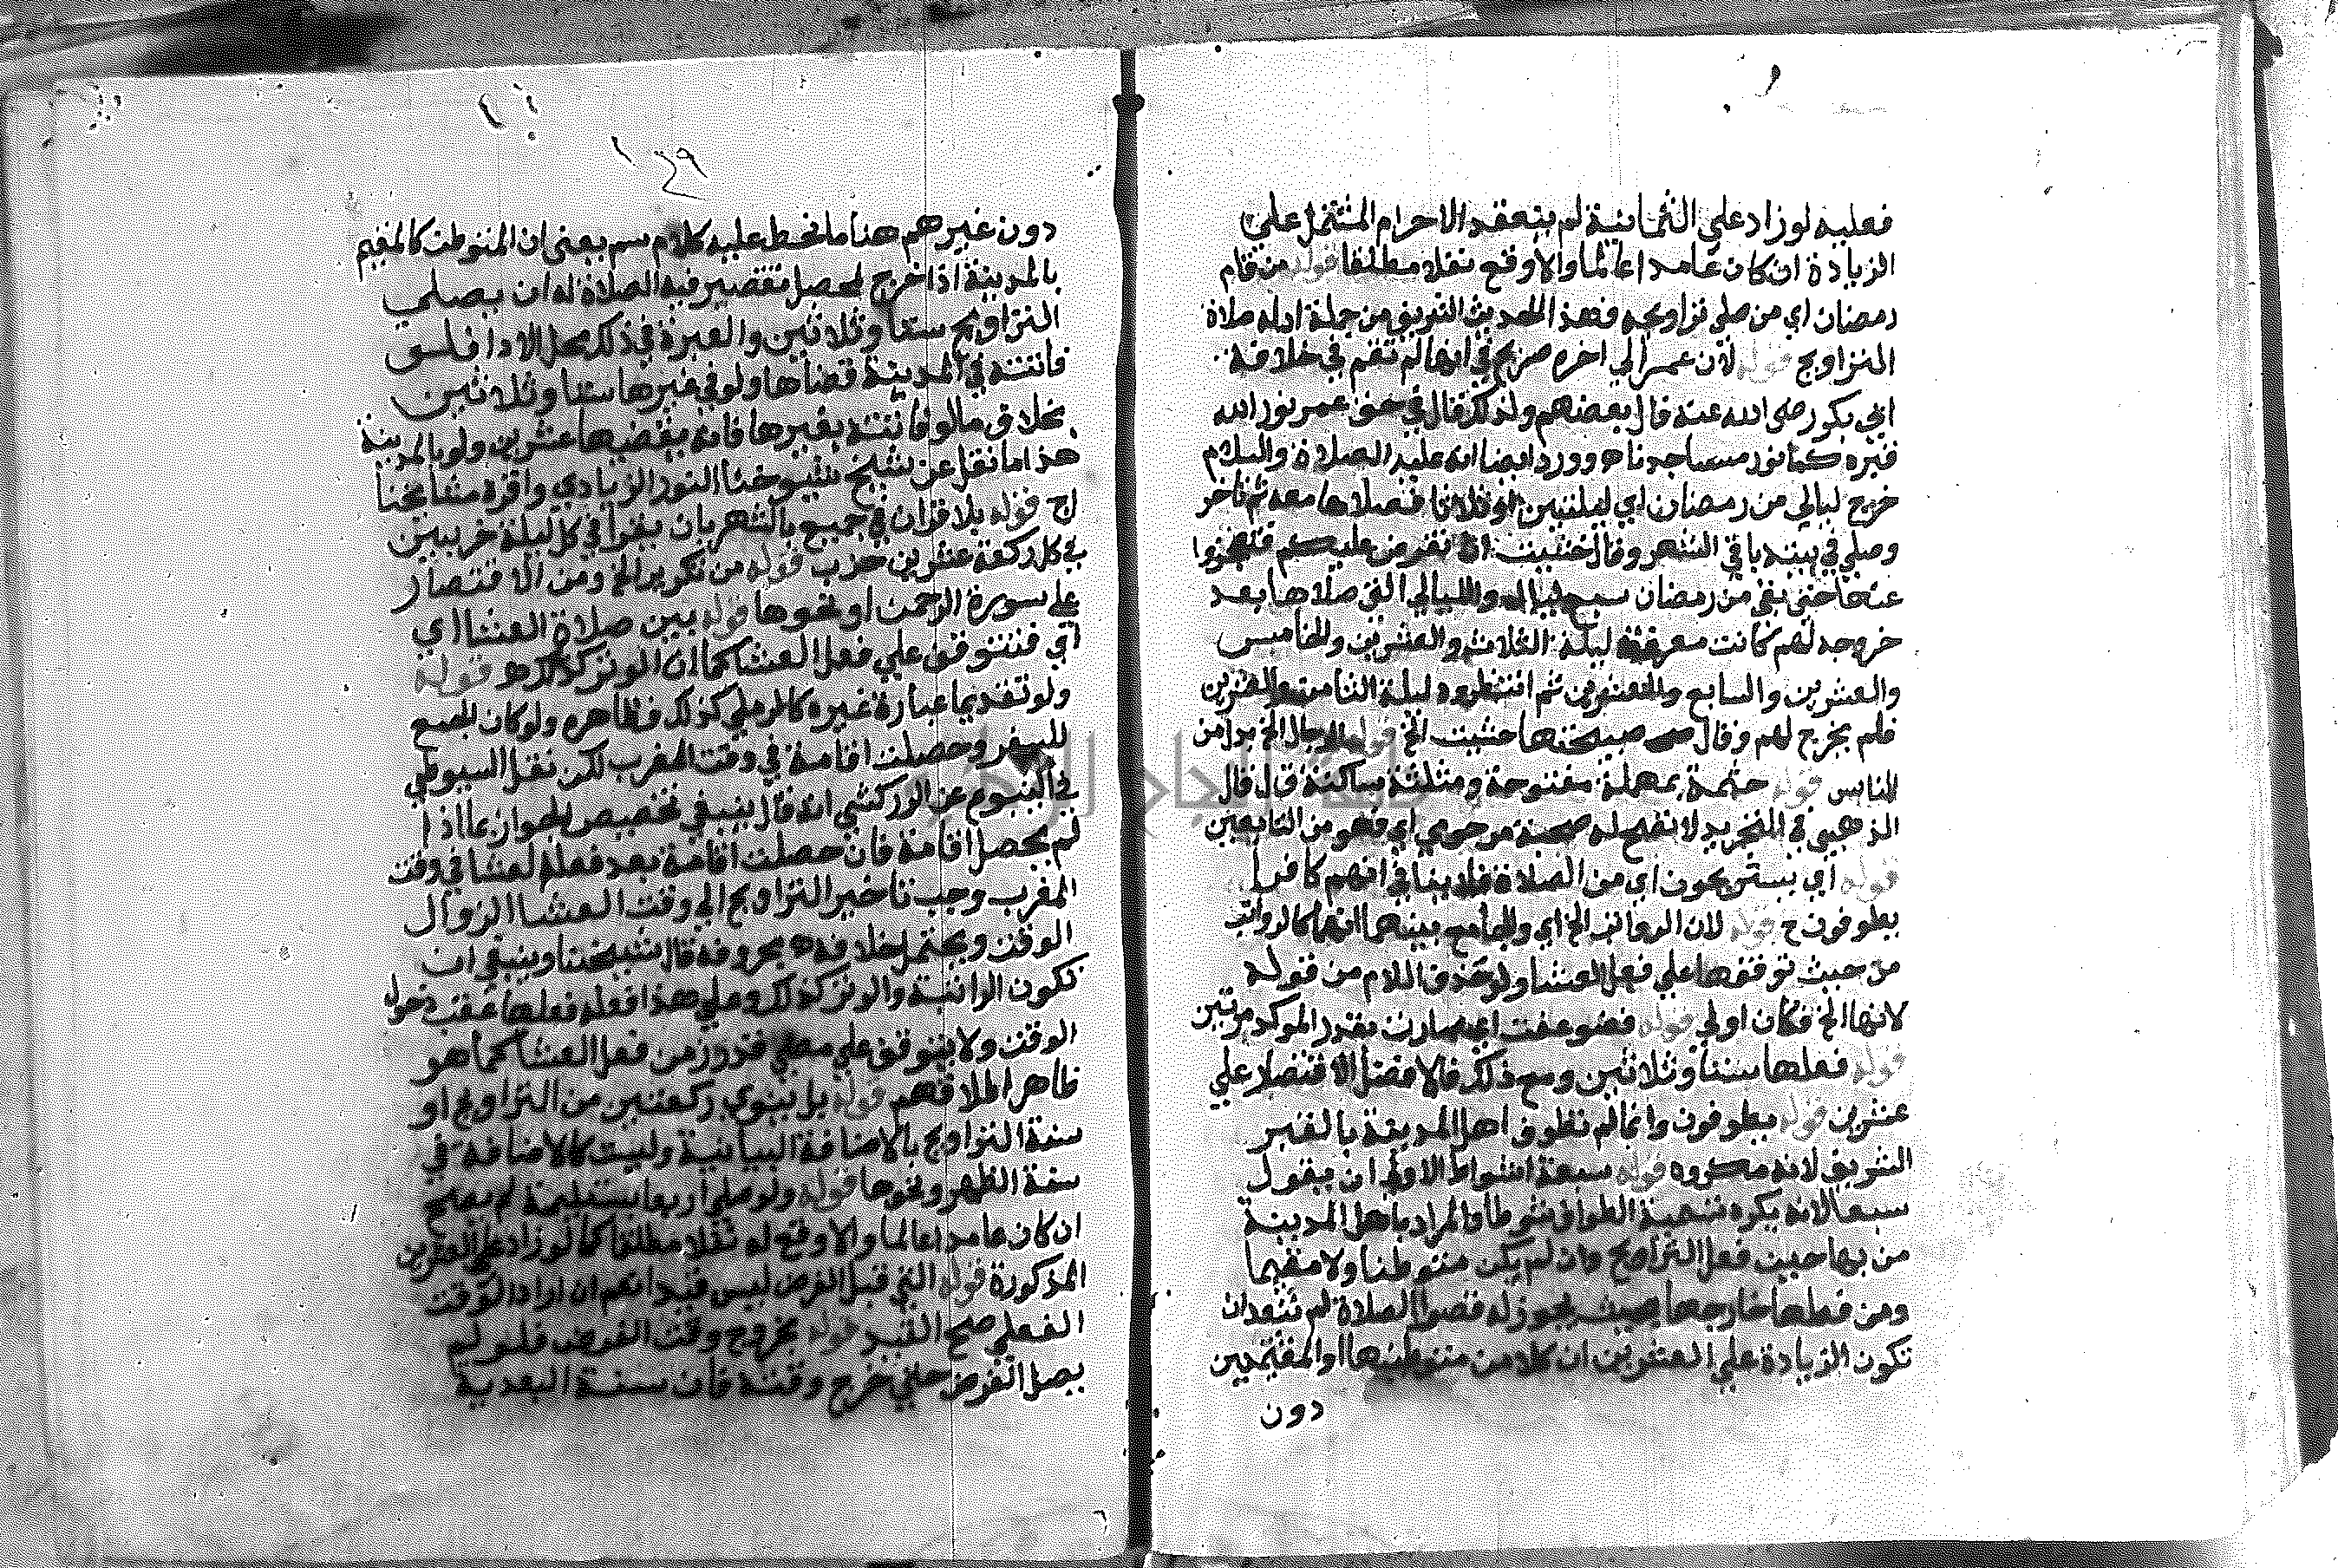 فعليه لو زاد علي الثمانية لم ينعقد الاحرام المشتمل علي
الزيادة ان كان عامدا عالما والا وقع نفلا مطلقا قوله من قام
رمضان اي من صلي تراويحه فهذا الحديث الشريف من جملة ادلة صلاة
التراويح قوله لان عمر الي اخره صريح في انها لم تقم في خلافة
ابي بكر رضي الله عنه قال بعضهم ولذلك قال في حق عمر نور الله
قبره كما نور مساجدنا وورد ايضا انه عليه الصلاة والسلام
خرج ليالي من رمضان اي ليلتين او ثلاثا فصلاها معه ثم تاخر
وصلي في بيته باقي الشهر وقال خشيت ان تفرض عليكم فتعجزوا
عنها حتي بقي من رمضان سبع ليال والليالي التي صلاها بعد
خروجه لهم كانت متفرقة ليلة الثلاث والعشرين والخامس
والعشرين والسابع والعشرين ثم انتظروه ليلة الثامن والعشرين
فلم يخرج لهم وقال صبيحتها خشيت الخ قوله الرجال الخ بدل من
الناس قوله حثمة بمهملة مفتوحة ومثلثة ساكنة ق ل قال
الذهبي في التجريد لا تصح له صحبة مرحومي اي فهو من التابعين
قوله اي يستريحون اي من الصلاة فلا ينافي انهم كانوا
يطوفون ح قوله لان الرواتب الخ اي والجامع بينهما انها كالرواتب
من حيث توقفها علي فعل العشا ولو حذف اللام من قوله
لانها الخ فكان اولي قوله فضوعفت اي صارت مقدر الموكد مرتين
قوله فعلها ستا وثلاثين ومع ذلك فالافضل الاقتصار علي
عشرين قوله يطوفون وانما لم تطوف اهل المدينة بالقبر
الشريف لانه مكروه قوله سبعة اشواط الاولي ان يقول
سبعا لانه يكره تسمية الطواف شوطا والمراد باهل المدينة
من بها حين فعل التراويح وان لم يكن متوطنا ولا مقيما
ومن فعلها خارجها بحيث يجوز له قصر الصلاة لم تتعد ان
تكون الزيادة علي العشرين ان كلا من متوطنيها او المقيمين
دون
١٣٩
دون غيرهم هذا ما نحط عليه كلام سم بمعني ان المتوطن كالمقيم
بالمدينة اذا خرج لمحل تقصر فيه الصلاة له ان يصلي
التراويح ستا وثلاثين والعبرة في ذلك بمحل الادا فلو
فاتته في المدينة قضاها ولو في غيرها ستا وثلاثين
بخلاف ما لو فاتته بغيرها فانه يقضيها عشرين ولو بالمدينة
هذا ما نقل عن شيخ شيوخنا النور الزيادي واقره مشايخنا
اج قوله بلا قران في جميع بالشهر بان يقرا في كل ليلة حزبين
في كل ركعة عشرين حزب قوله من تكرير الخ ومن الاقتصار
علي سورة الرحمن او نحوها قوله بين صلاة العشا اي
اي فتتوقف علي فعل العشا كما ان الوتر كذلك قوله
ولو تقديما عبارة غيره كالرملي كذلك فظاهره ولو كان الجمع
للسفر وحصلت اقامة في وقت المغرب لكن نقل السيوطي
في الينبوع عن الزركشي انه قال ينبغي تخصيص الجواز بما اذا
لم يحصل اقامة فان حصلت اقامة بعد فعله العشا في وقت
المغرب وجب تاخير التراويح الي وقت العشا لزوال
الوقت ويحتمل خلافه ه بحروفه قال شيخنا وينبغي ان
تكون الراتبة والوتر كذلك وعلي هذا فعله فعلها عقب دخول
الوقت ولا يتوقف علي مضي قدر زمن فعل العشا كما هو
ظاهر اطلاقهم قوله بل ينوي ركعتين من التراويح او
سنة التراويح بالاضافة البيانية وليست كالاضافة في
سنة الظهر ونحوها قوله ولو صلي اربعا بتسليمة لم يصح
ان كان عامدا عالما والا وقع له نفلا مطلقا كما لو زاد علي العشرين
المذكورة قوله التي قبل الفرض ليس قيدا نعم ان اراد الوقت
الفعلي صح القيد قوله بخروج وقت الفرض فلو لم
يصل الفرض حتي خرج وقته فان سنة البعدية